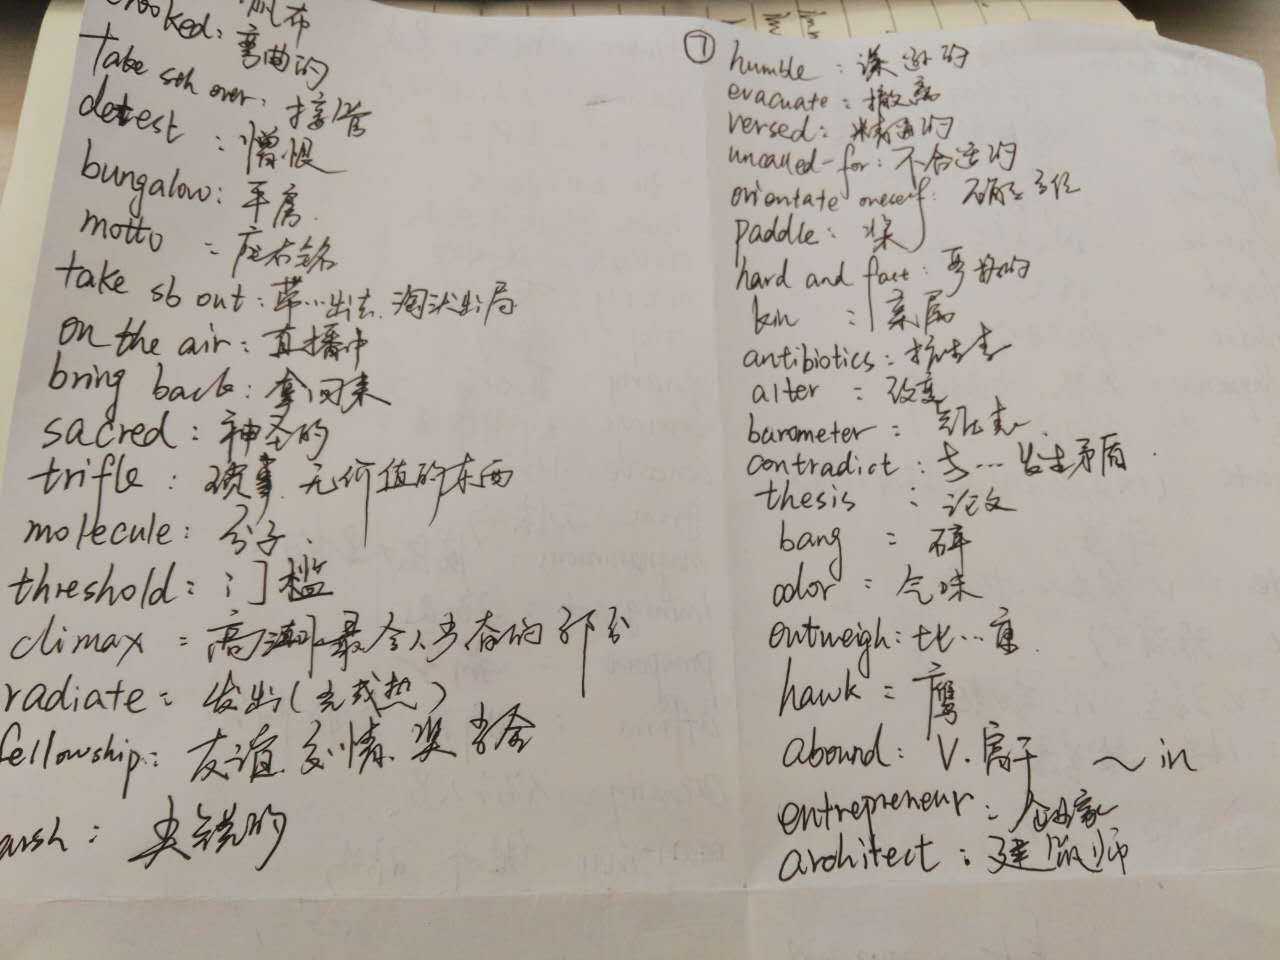 帆布
crooked: 弯曲的
take sth over: 接管
detest : 憎恨
bungalow: 平房.
motto : 座右铭
take sb out: 带…出去. 淘汰出局
on the air: 直播中
bring back: 拿回来
sacred: 神圣的
trifle: 琐事. 无价值的东西
molecule: 分子.
threshold: 门槛
climax : 高潮. 最令人兴奋的部分
radiate: 发出(光或热)
fellowship: 友谊. 交情. 奖学金
⑦
humble: 谦逊的
evacuate: 撤离
versed: 精通的
uncalled-for: 不合适的
orientate oneself: 确定方位
paddle: 桨
hard and fast:
kin : 亲属
antibiotics: 抗生素
alter : 改变
barometer: 气压表
contradict: 与…发生矛盾.
thesis : 论文
bang : 砰
odor: 气味
outweigh: 比…重.
hawk: 鹰
abound: V. 富于 ~ in
entrepreneur: 企业家
architect: 建筑师